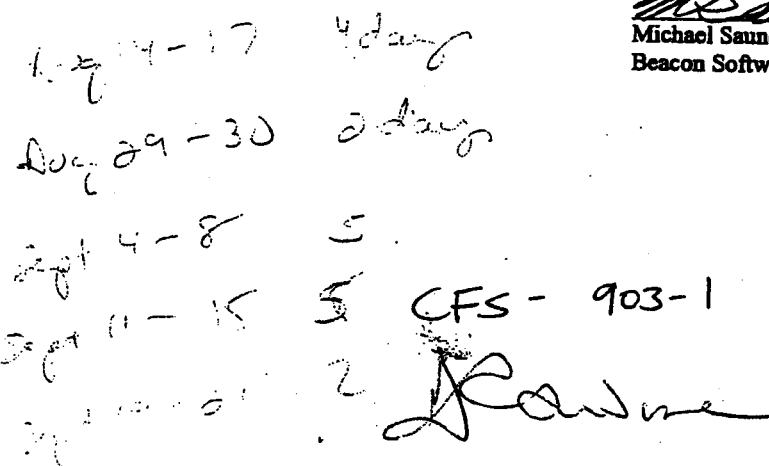 Michael Saun
Beacon Softw
Aug 14 - 17 4 days
Aug 29 - 30 2 days
Sept 4 - 8 5
Sept 11 - 15 5 CFS - 903-1
Sept 2